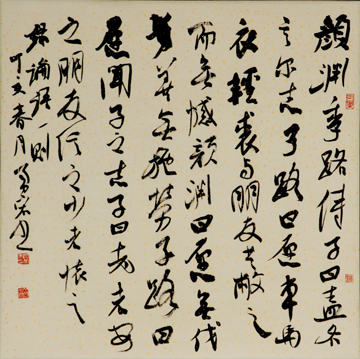 顏渊季路侍子曰盍各
言尔志子路曰愿車馬
衣輕裘与朋友共敝之
而無憾顏渊曰愿無伐
善無施勞子路曰
愿聞子之志子曰老者安
之朋友信之少者懷之
錄論語一則
丁亥春月